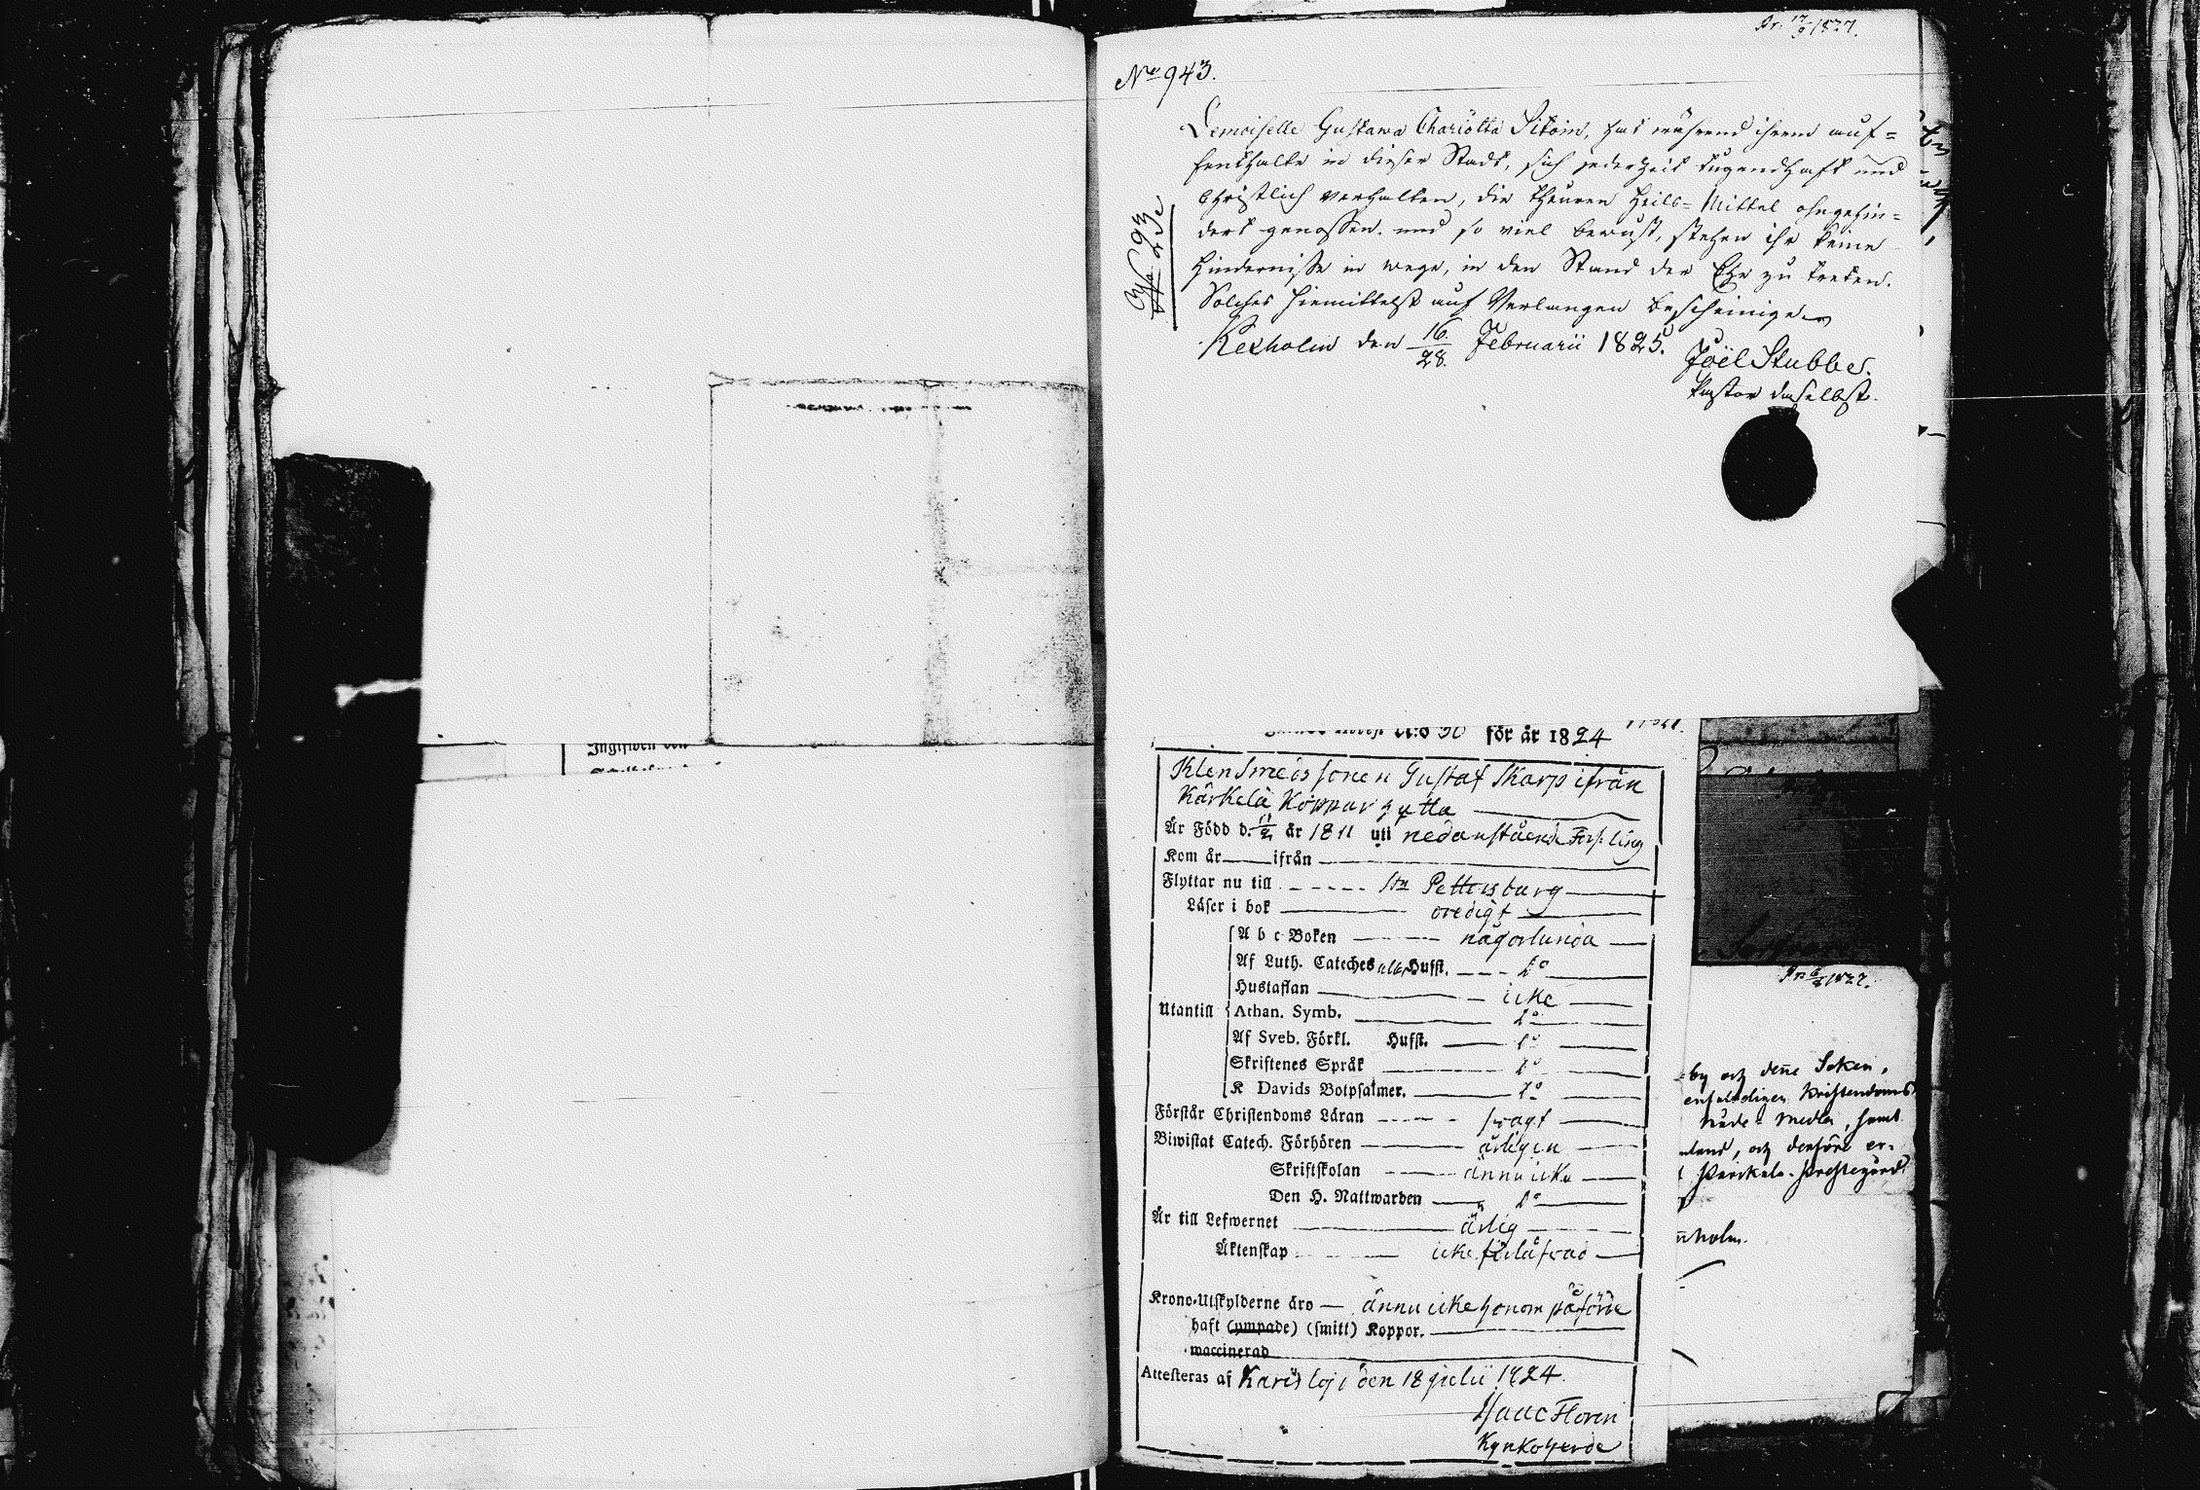 17/9 1827.
No 943.
Demoiselle Gustawa Charlotta Sitoin, hat während ihrem auf=
fenthalte in dieser Stadt, sich jederzeit tugendhaft und
Christlich verhalten, die theuren Heils=Mittel ohngehin=
dert genossen. und so viel bewust, stehen ihr keine
Hindernisse in wege, in den Stand der Ehe zu treten.
Solches hiemittelst auf Verlangen bescheinige
Kexholm den 16./28. Februarii 1825.
Joël Stubbe.
Pastor daselbst.
293
för år 1824
Klensmedssonen Gustaf Skarp ifrån
Kärkelä Koppar hytta
Är Född d. 11/2 år 1811 uti nedanstående Förs:ling
Kom år ifrån
Flyttar nu till St Pettersburg
Läser i bok oredigt
Utantill
A b c Boken någorlunda
Af Luth. Cateches Hufst. do
Hustaflan icke
Athan. Symb. do
Af Sveb. Förkl. Hufst. do
Skriftenes Språk do
K Davids Botpsalmer. do
Förstår Christendoms Läran svagt
Biwistat Catech. Förhören årligen
Skriftskolan ännu icke
Den H. Nattwarden do
Är till Lefwernet ärlig
Äktenskap icke förlåfvad
Krono-Utskylderne äro ännu icke honom påförde
haft (ympade) (smitt) Koppor.
waccinerad
Attesteras af Karislojo den 18 julii 1824.
Isaac Floren
Kyrkoherde
by och denne Soken,
enfaldigen Kristendoms
Nåde-medlen, samt
och derföre er-
Prestegård
holm.